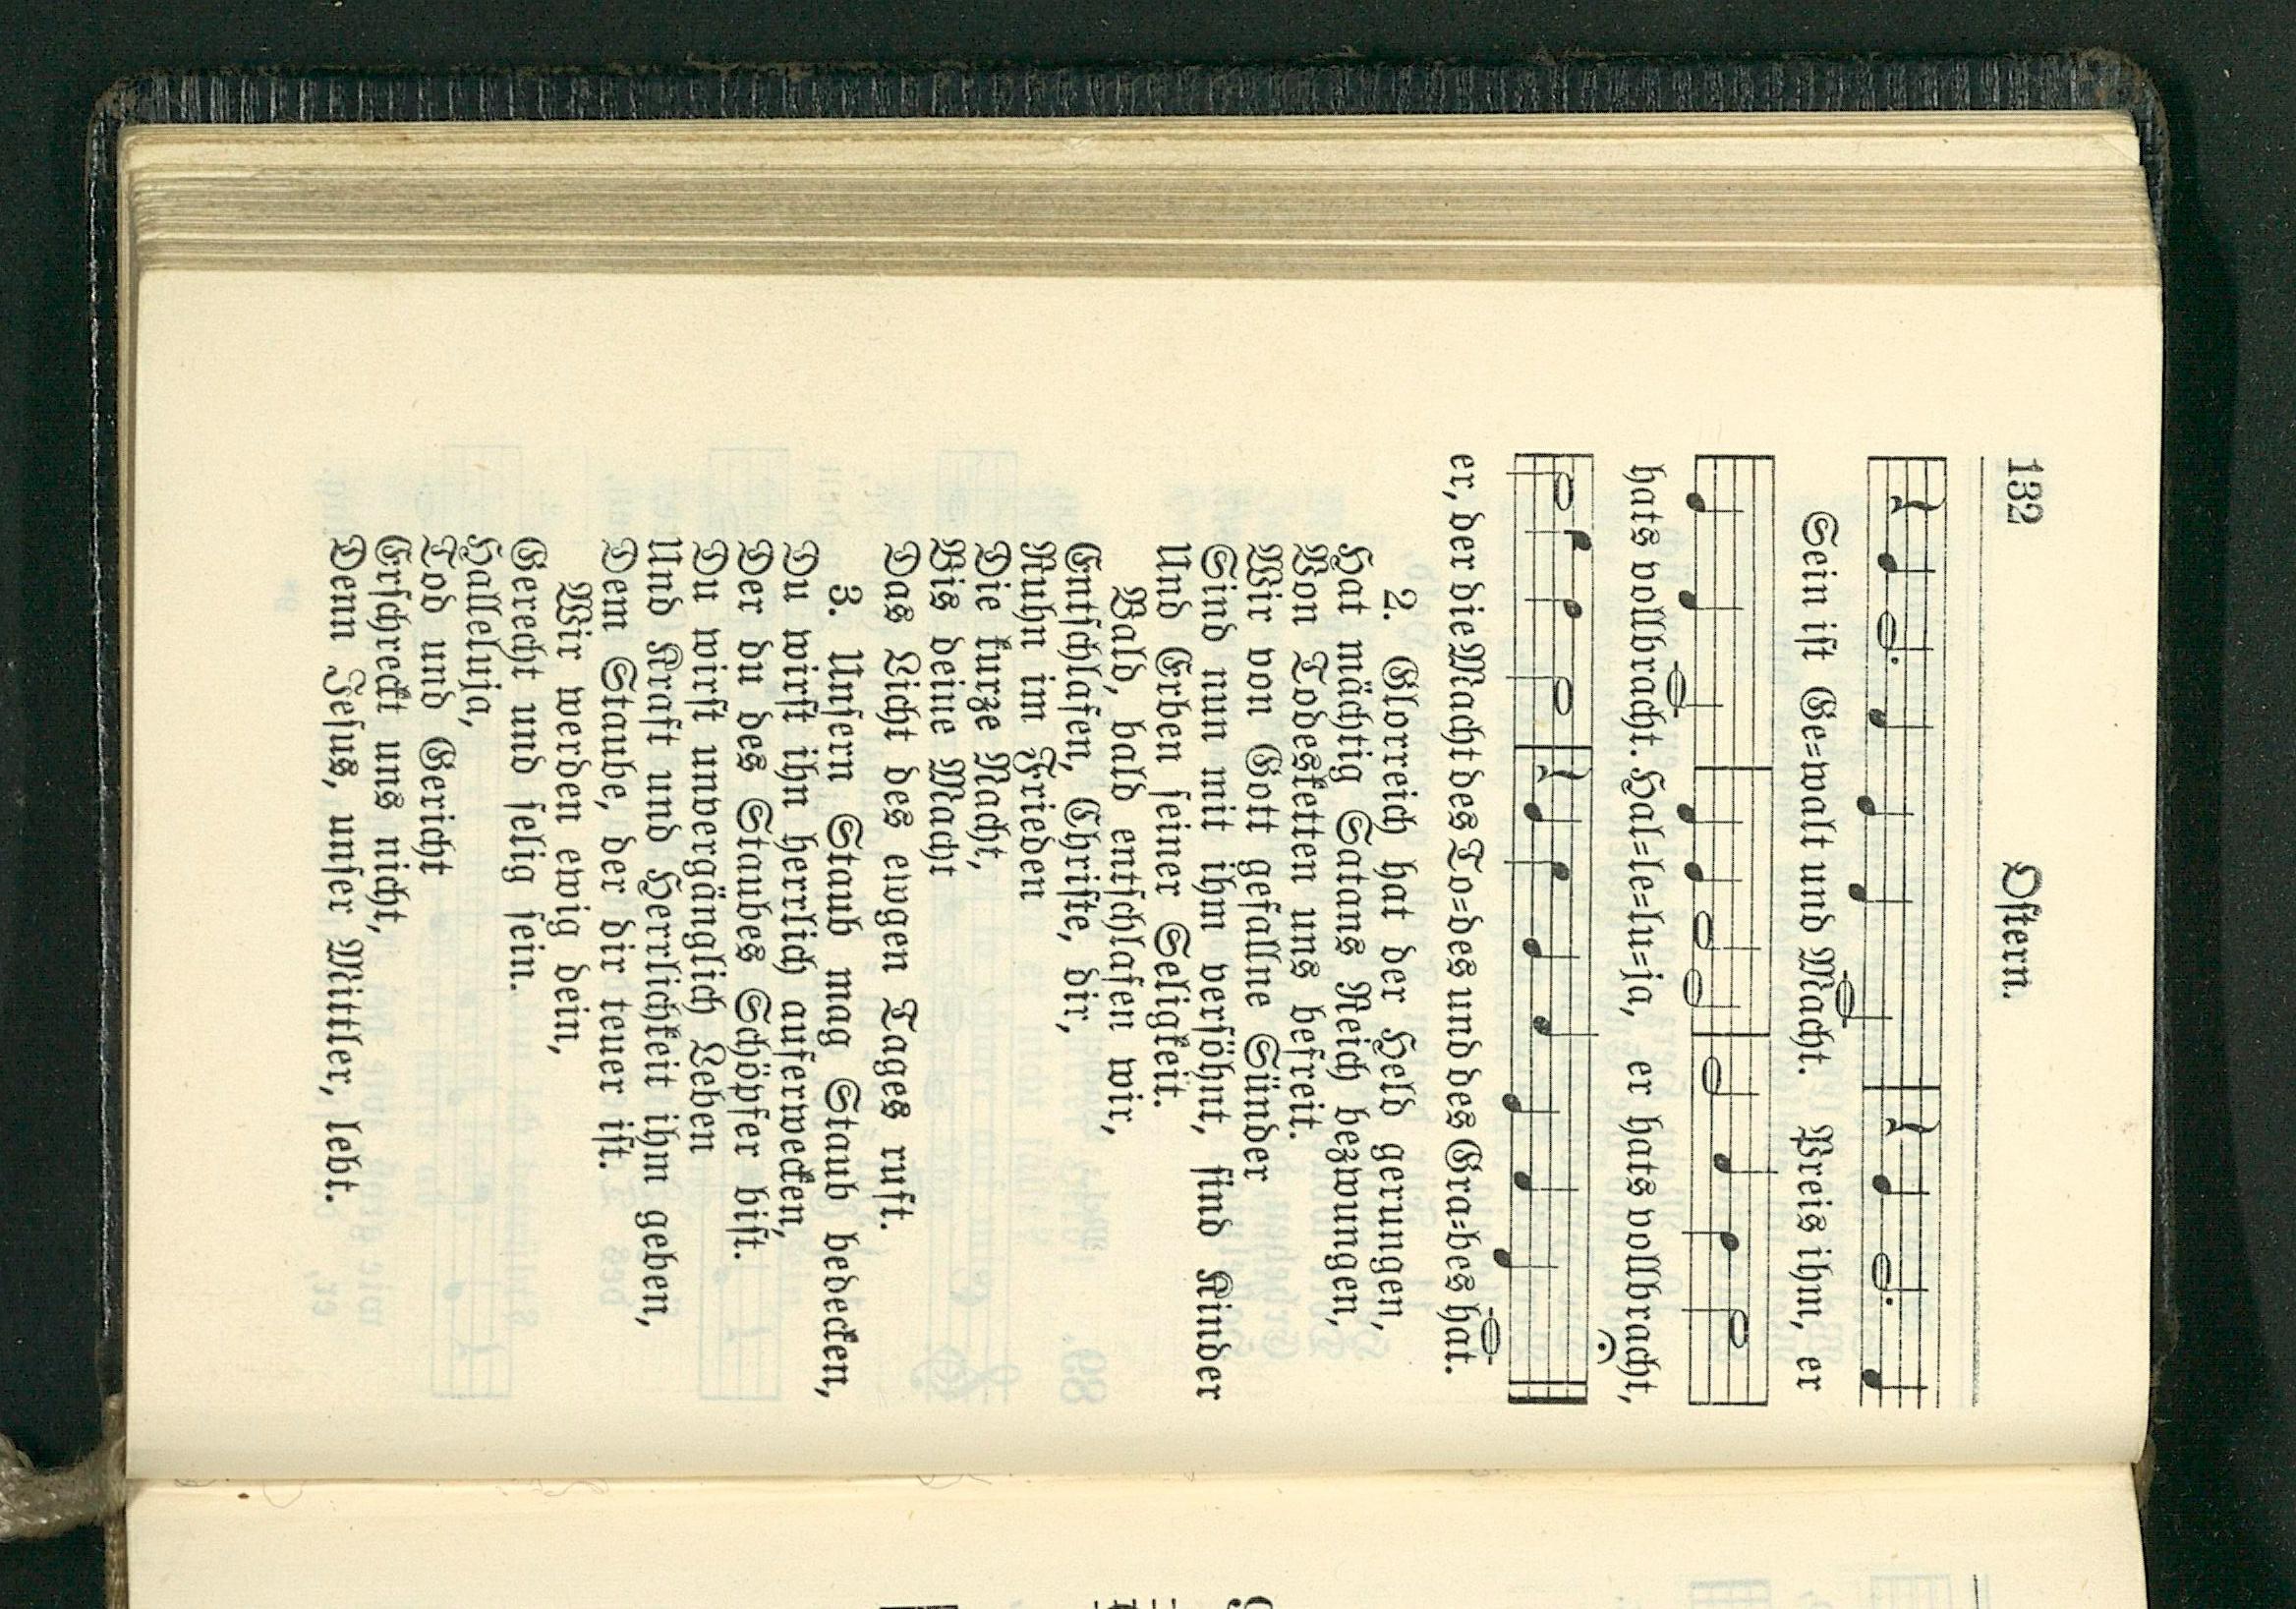 132
Oſtern.
Sein iſt Ge=walt und Macht. Preis ihm, er
hats vollbracht. Hal=le=lu=ja, er hats vollbracht,
er, der die Macht des To=des und des Gra=bes hat.
2. Glorreich hat der Held gerungen,
Hat mächtig Satans Reich bezwungen,
Von Todesketten uns befreit.
Wir von Gott gefallne Sünder
Sind nun mit ihm verſöhnt, ſind Kinder
Und Erben ſeiner Seligkeit.
Bald, bald entſchlafen wir,
Entſchlafen, Chriſte, dir,
Ruhn im Frieden
Die kurze Nacht,
Bis deine Macht
Das Licht des ewgen Tages ruft.
3. Unſern Staub mag Staub bedecken,
Du wirſt ihn herrlich auferwecken,
Der du des Staubes Schöpfer biſt.
Du wirſt unvergänglich Leben
Und Kraft und Herrlichkeit ihm geben,
Dem Staube, der dir teuer iſt.
Wir werden ewig dein,
Gerecht und ſelig ſein.
Halleluja,
Tod und Gericht
Erſchreckt uns nicht,
Denn Jeſus, unſer Mittler, lebt.